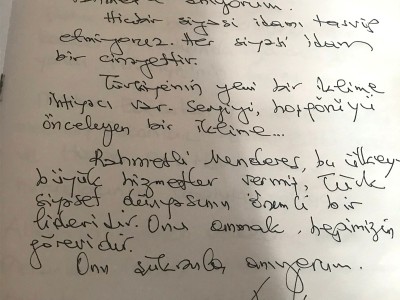 rahmetle anıyorum.
Hiçbir siyasi idamı tasvip
etmiyoruz. Her siyasi idam
bir cinayettir.
Türkiye'nin yeni bir iklime
ihtiyacı var. Sevgiyi, hoşgörüyü
önceleyen bir iklime...
Rahmetli Menderes, bu ülkey
büyük hizmetler vermiş, Türk
siyaset dünyasının önemli bir
lideridir. Onu anmak, hepimizin
görevidir.
Onu şükranla anıyorum.